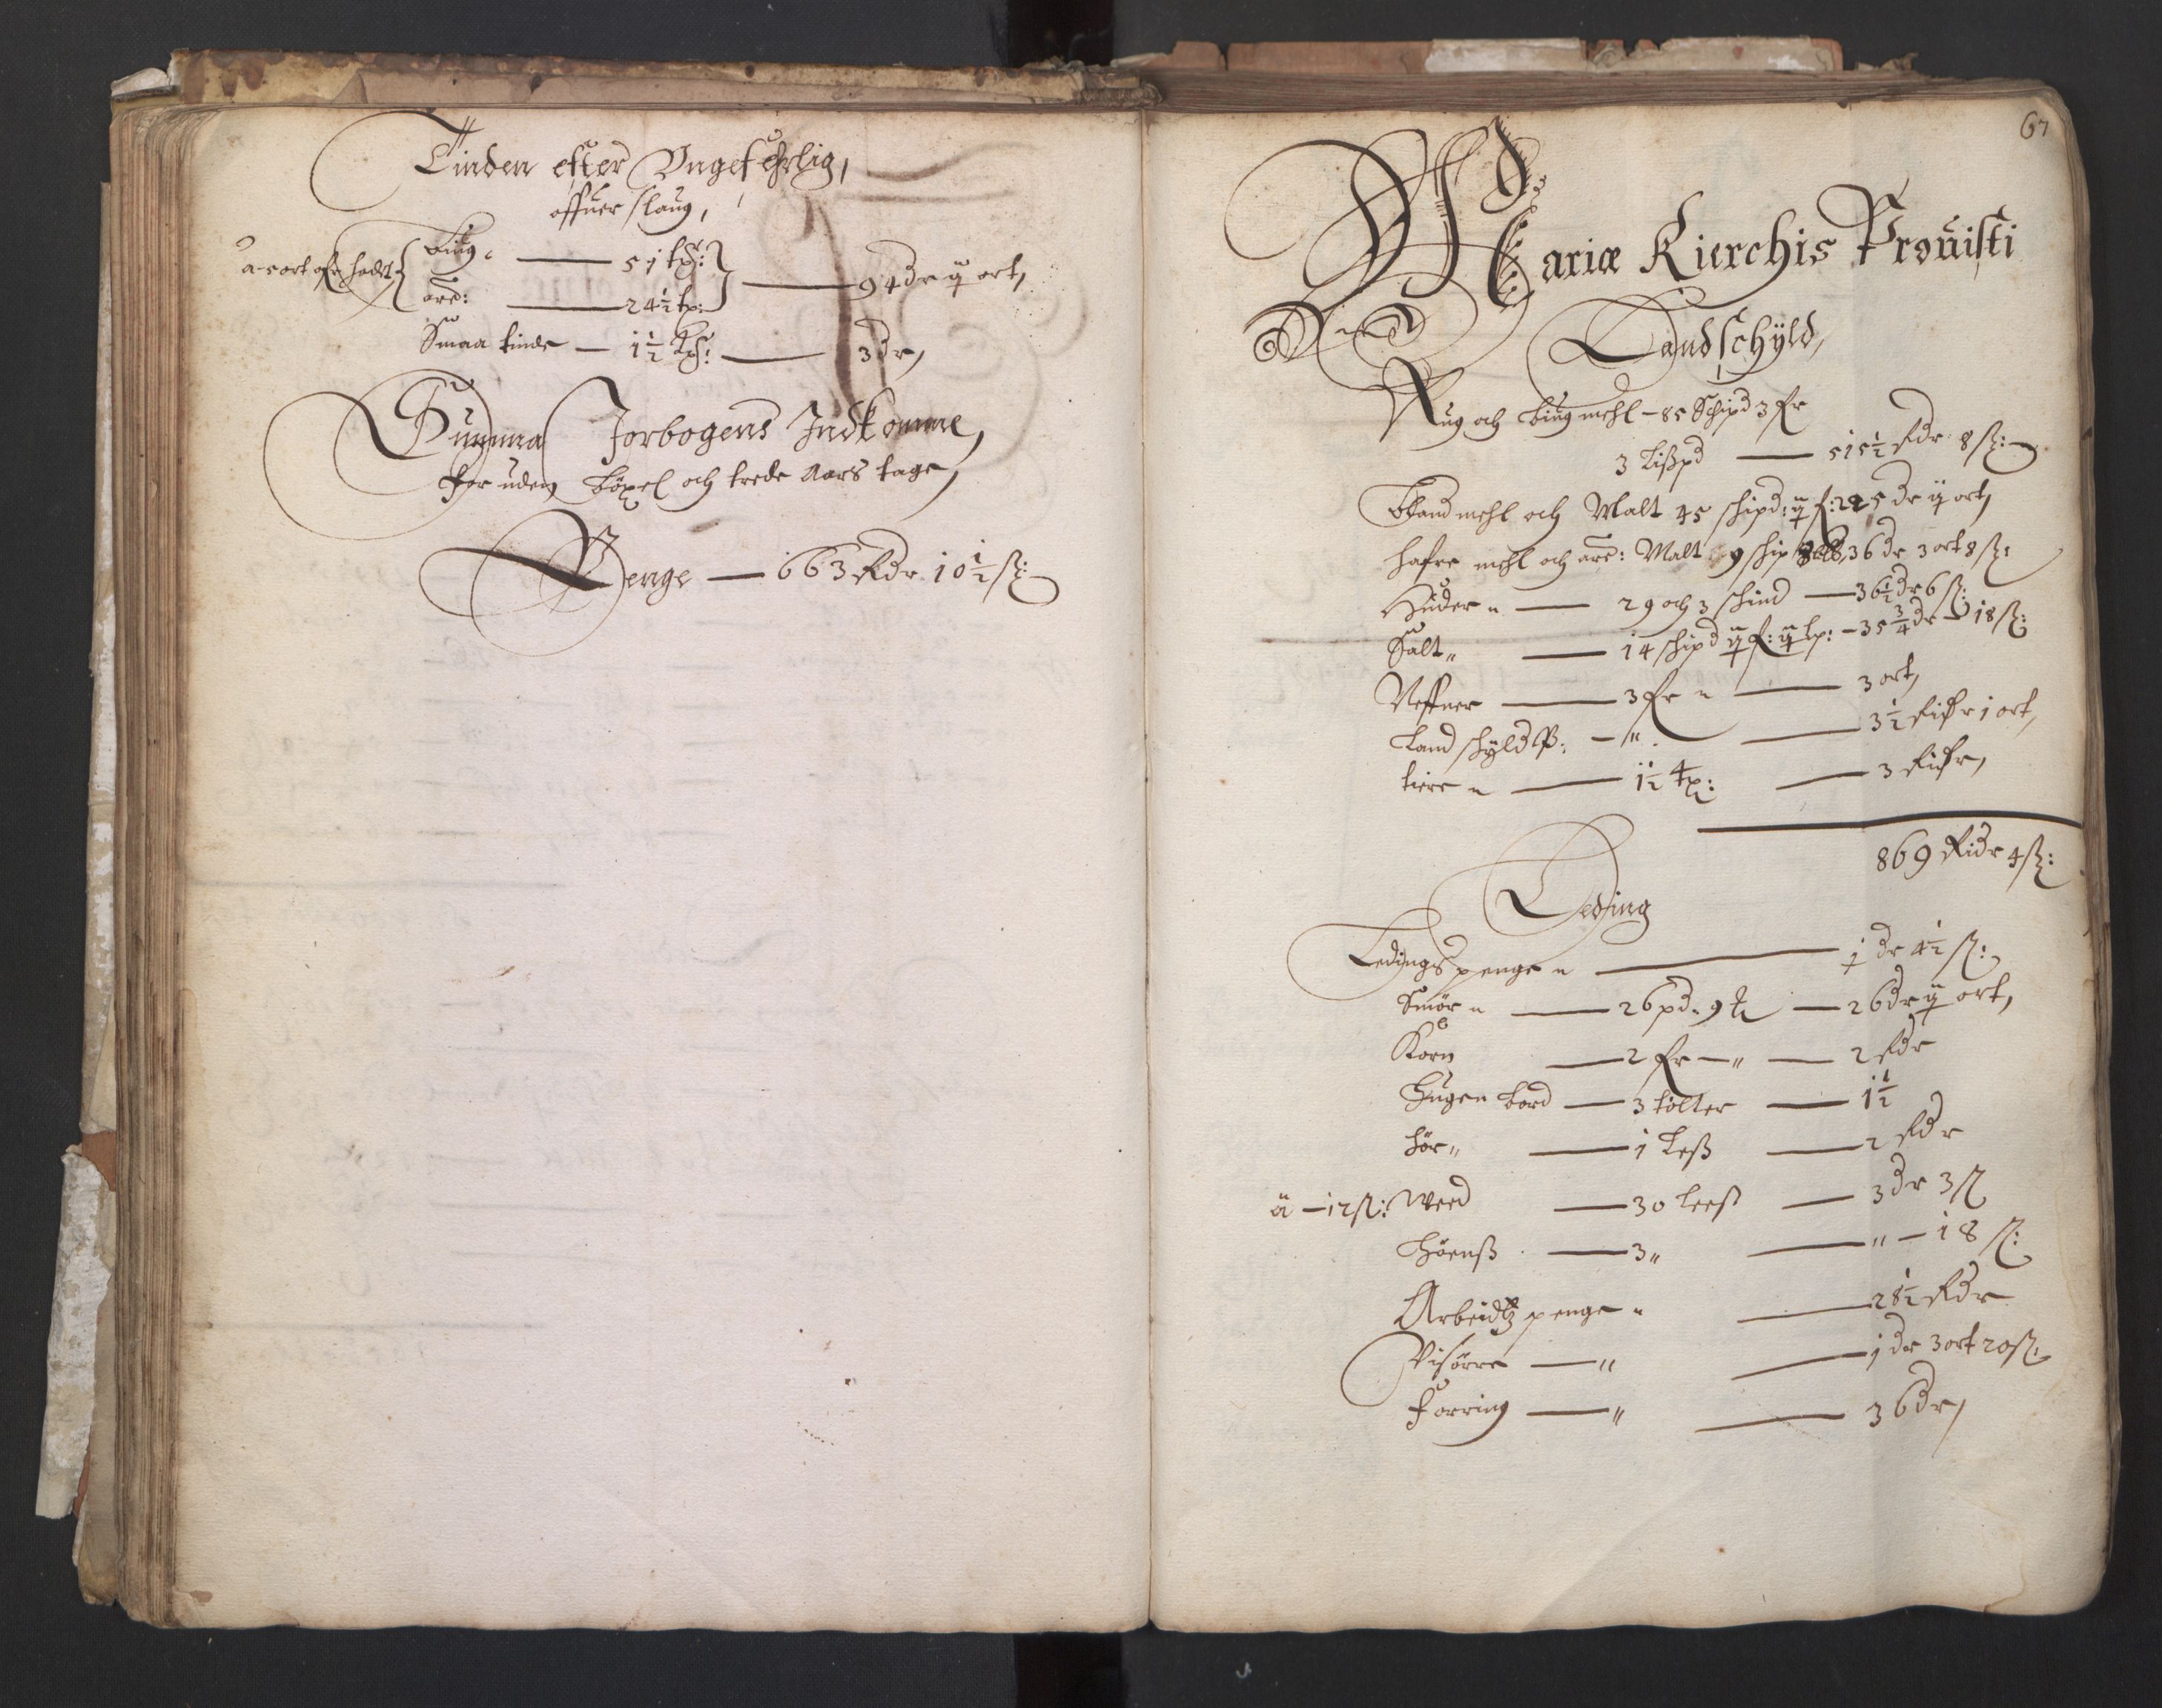 Tinden efter Vngefehrlig,
offuer slaug,
Biug — 51 tp:
a 5 ort — 94 dr ij ort,
are: — 24½ tp:
Smaa tinde — 1½ tp: — 3 dr,
Summa Jorbogens Indkomme,
for uden Böxel och trede Aars tage,
Penge — 663 Rdr 10½ ß:
67
Mariæ Kierchis Prouisti
Landschyld,
Rug och Biug mehl – 85 Schipd 3 fr
3 Lißpd — 515½ Rdr 8 ß:
Bland mehl och Malt 45 schipd: ij f: 225 dr ij ort,
Hafre mehl och are: Malt 9 schip 36 dr 3 ort 8 ß:
Huder — 29 och 3 schind — 36½ dr 6 ß:
Salt — 14 schipd ij f: ij lp: – 35¾ dr 18 ß:
Neffuer — 3 fr — 3 ort,
Landschyld P: — 3½ Ridr 1 ort,
tiere — 1½ tp: — 3 Ridr,
869 Ridr 4 ß:
Leding
Ledings penge — 1 dr 4½ ß:
Smör — 26 pd. 9 — 26 dr ij ort,
Korn — 2 fr — 2 Rdr
Hugen bord — 3 tölter — 1½
Hör — 1 Leß — 2 Rdr
a – 12 ß: Weed — 30 leeß — 3 dr 3 ß
Höenß — 3 — 18 ß:
Arbeidtz penge — 28½ Rdr
Visörre — 1 dr 3 ort 20 ß.
Forring — 36 dr,